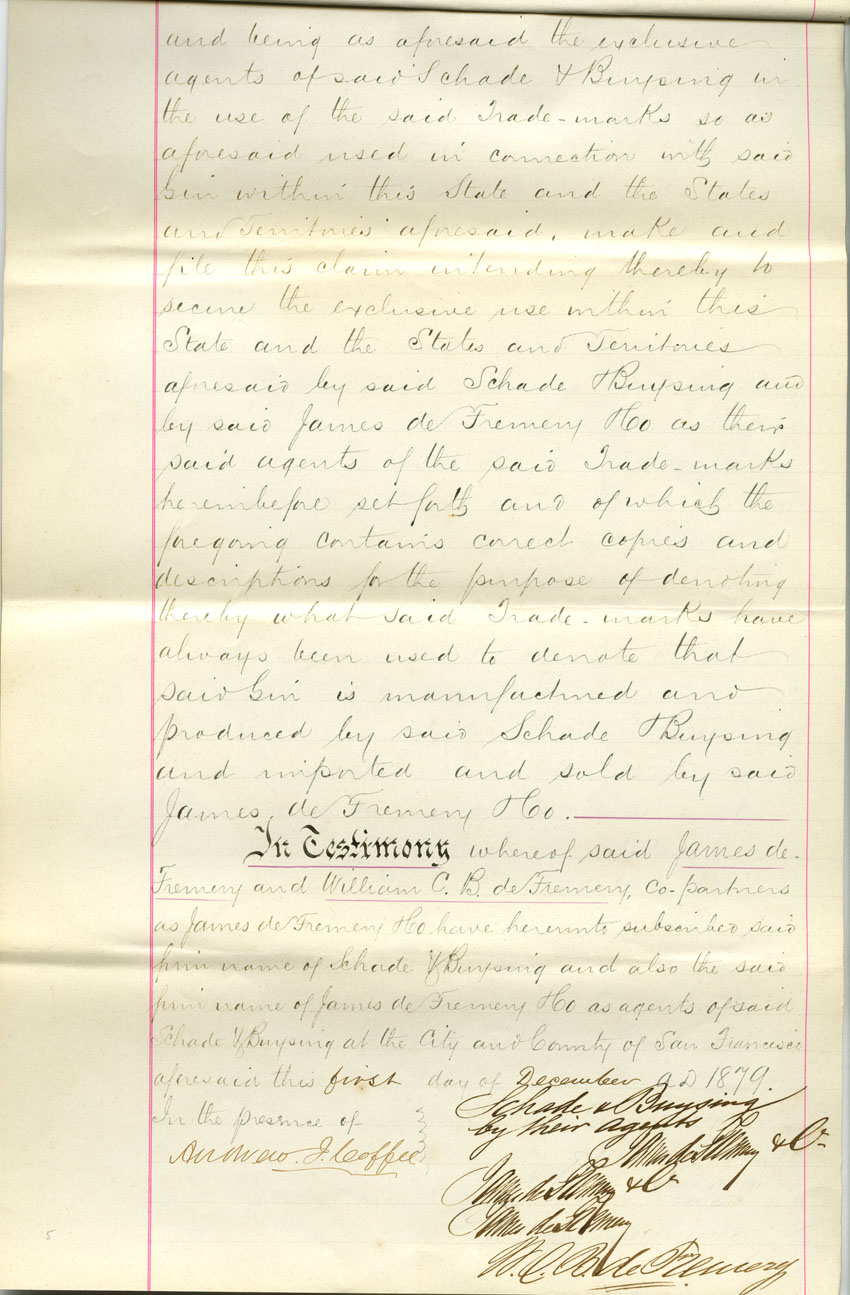 and being as aforesaid the exclusive
agents of said Schade & Buysing in
the use of the said Trade-marks so as
aforesaid used in connection with said
Gin within this State and the States
and Territories aforesaid, make and
file this claim intending thereby to
secure the exclusive use within this
State and the States and Territories
aforesaid by said Schade & Buysing and
by said James de Fremery & Co as their
said agents of the said Trade-marks
hereinbefore set forth and of which the
foregoing contains correct copies and
descriptions for the purpose of denoting
thereby what said Trade-marks have
always been used to denote that
said Gin is manufactured and
produced by said Schade & Buysing
and imported and sold by said
James de Fremery & Co.
In Testimony whereof said James de-
Fremery and William C. B. de Fremery, co-partners
as James de Fremery & Co have hereunto subscribed said
firm name of Schade & Buysing and also the said
firm name of James de Fremery & Co as agents of said
Schade & Buysing at the City and County of San Francisco
aforesaid this first day of December A D 1879.
In the presence of
Andrew J. Coffee
Schade & Buysing
by their agents
James de Fremery & Co
James de Fremery & Co
James de Fremery
W. C. B. de Fremery
5